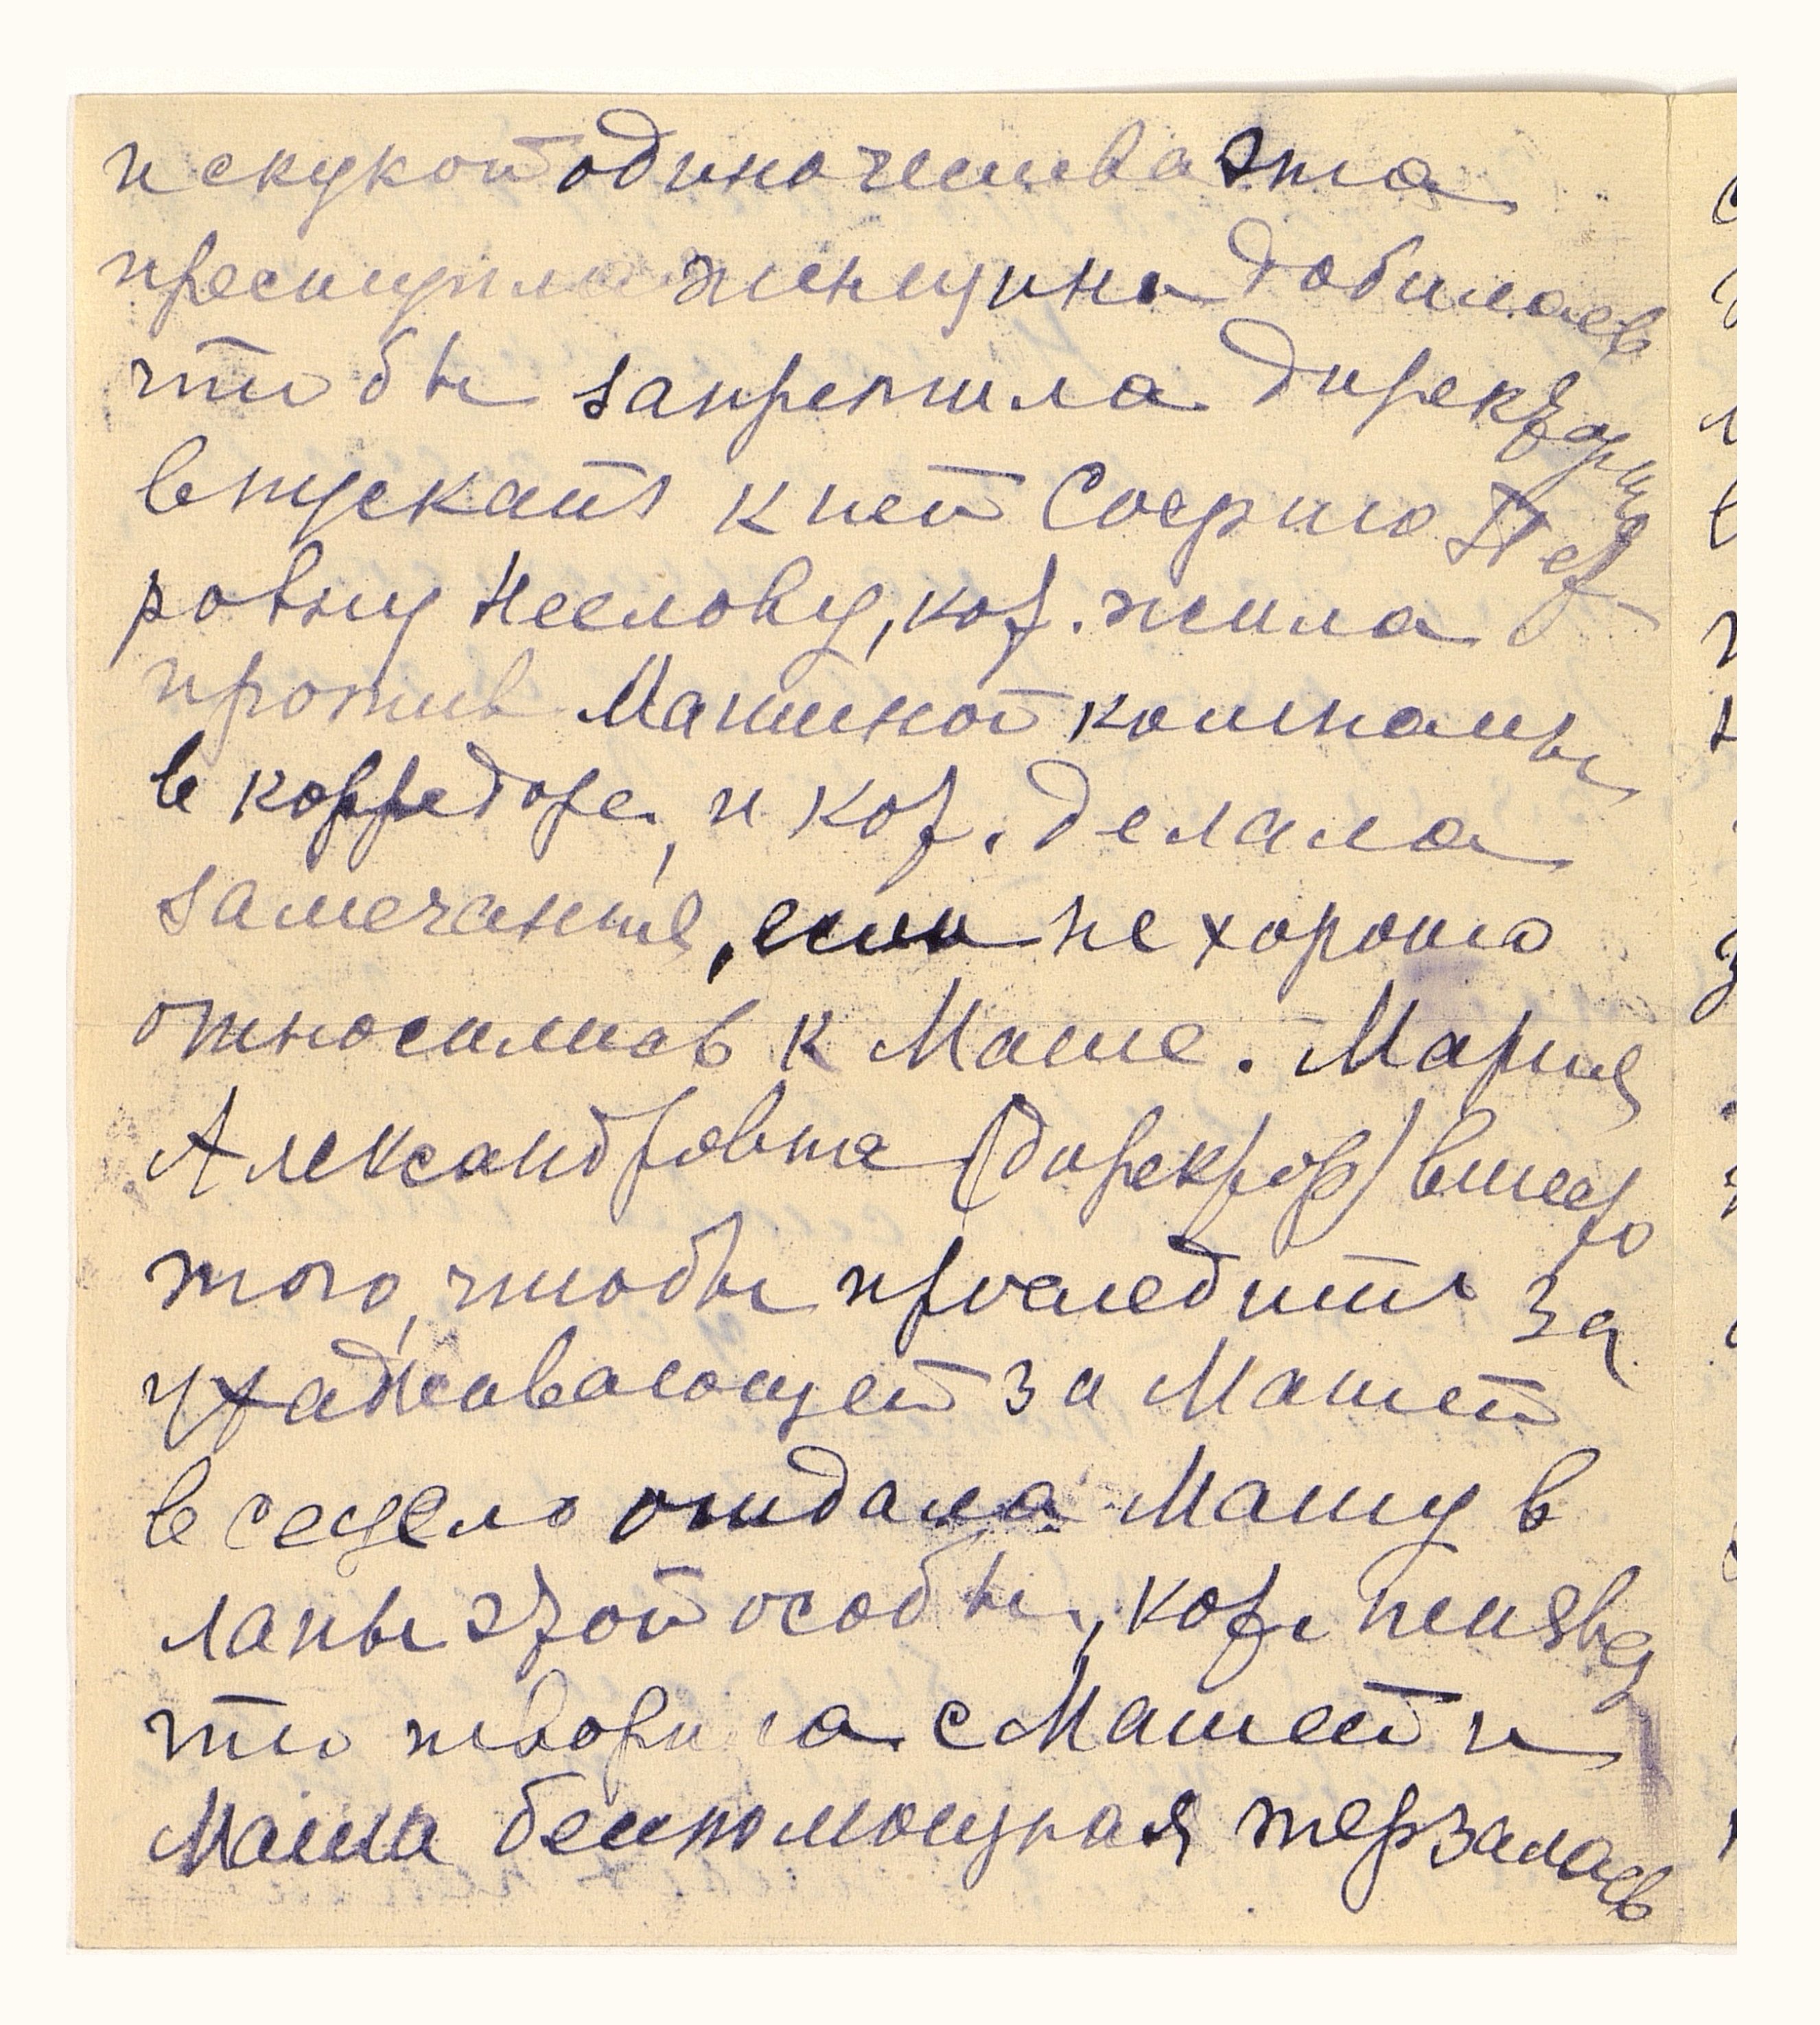 и скукой одиночества эта
преступная женщина добилась
что бы запретила директорша
впускать к ней Софию Пет-
ровну Неелову, кот. жила
против Машиной комнаты
в корредоре, и кот. делала
замечания, если не хорошо
относились к Маше. Мария
Александровна (директор) вместо
того, чтобы проследить за
ухаживающей за Машей
всецело отдала Машу в
лапы этой особы, кот.
что творила с Машей и
Маша беспомощная терзалась